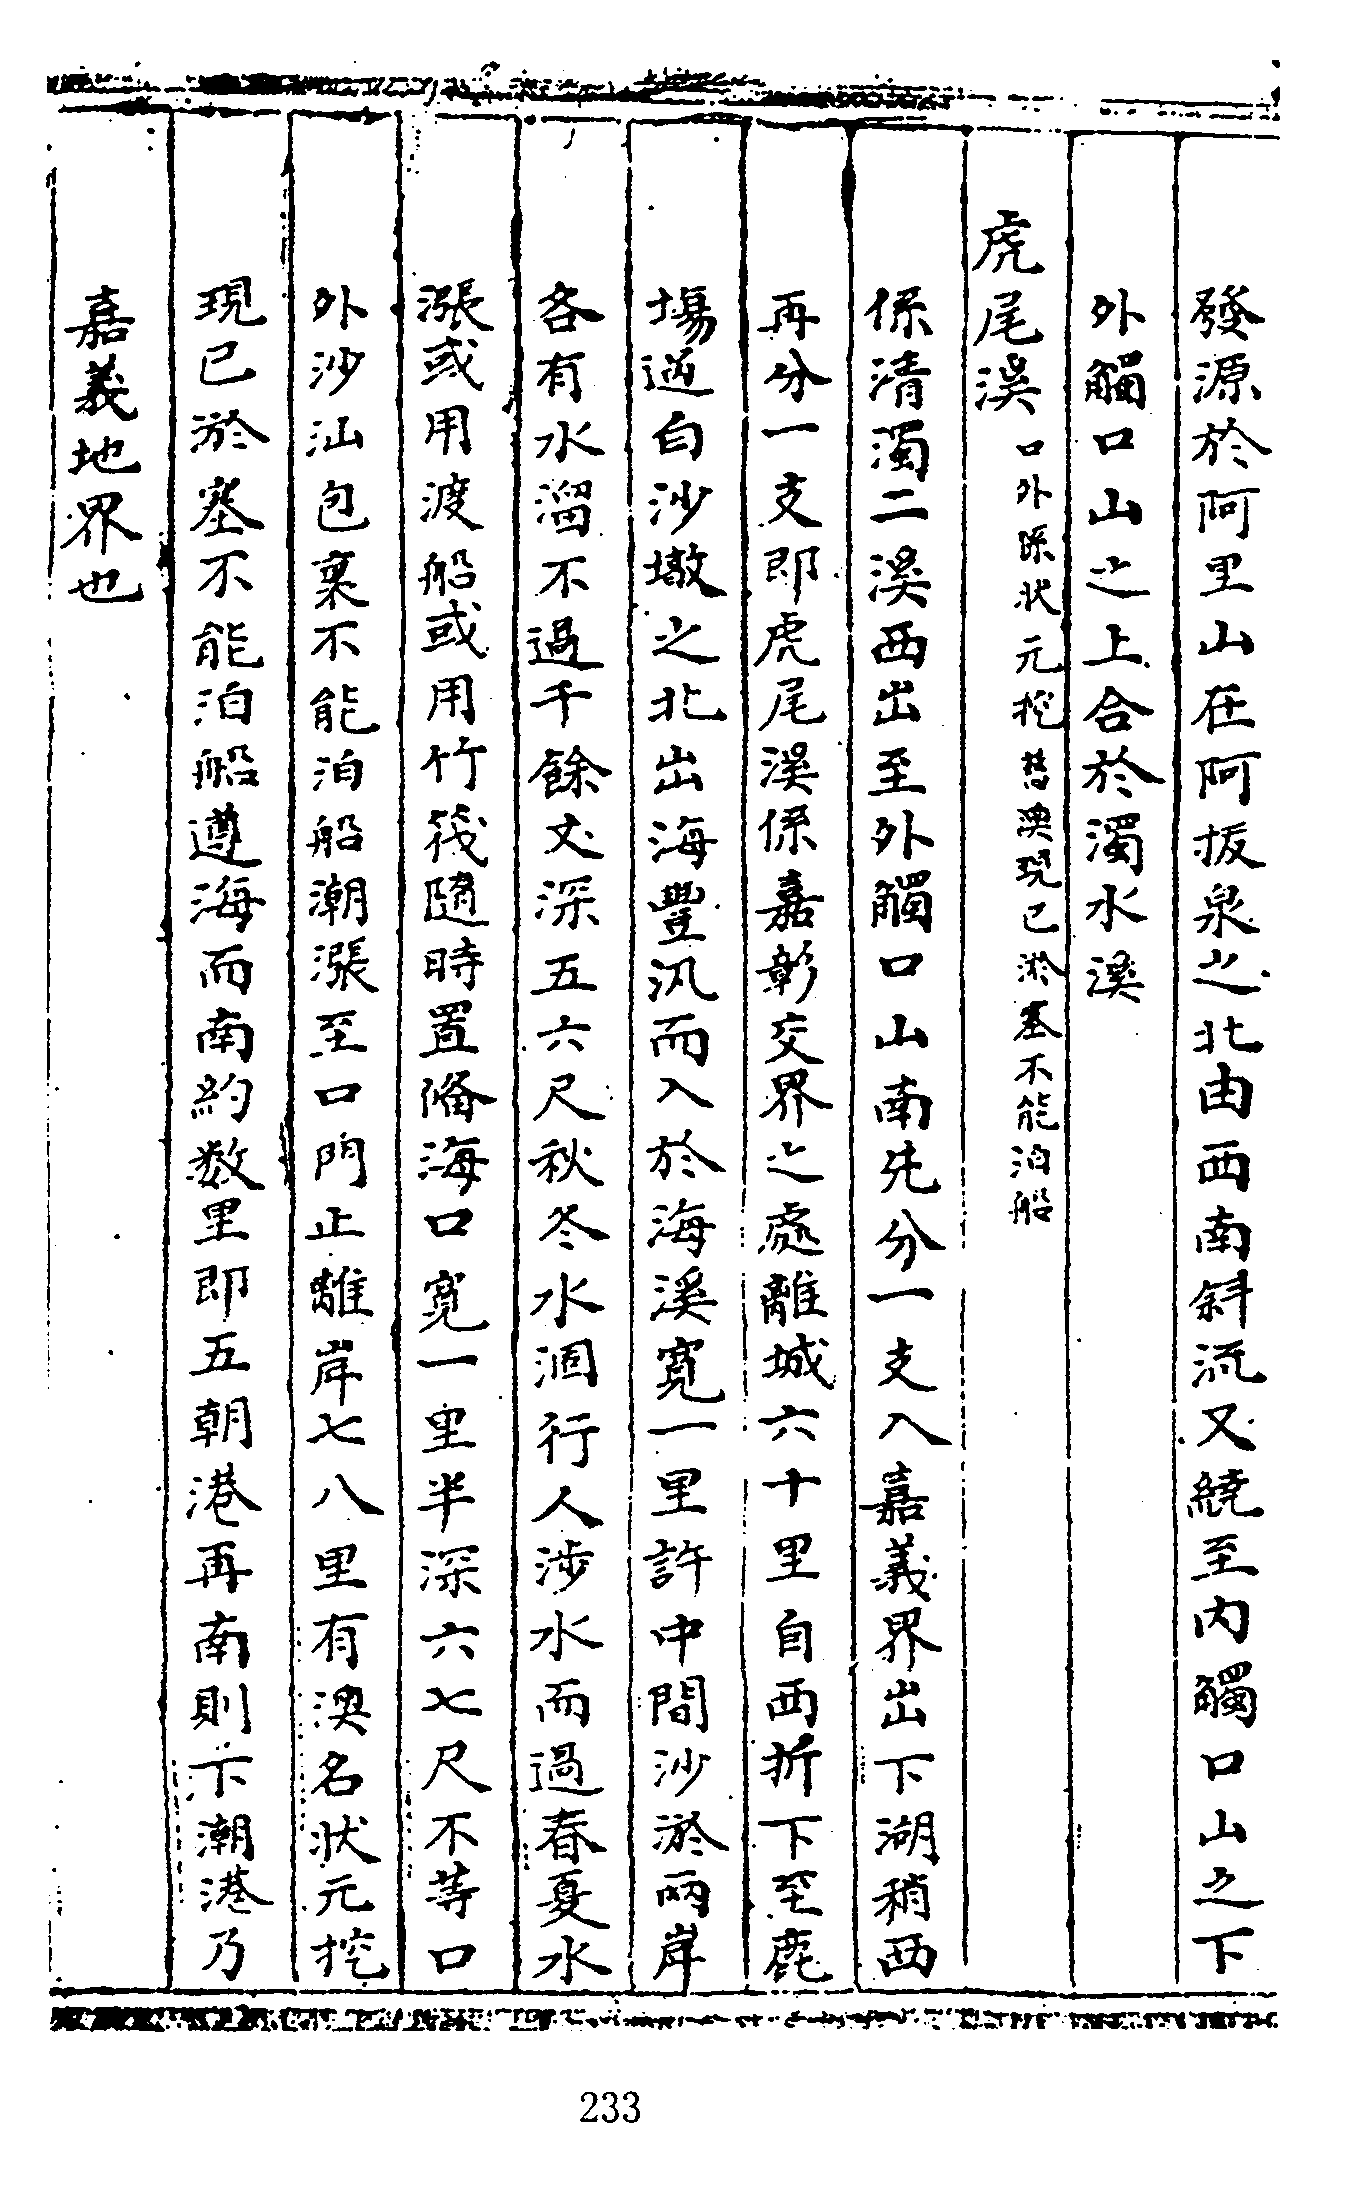 發源於阿里山在阿拔泉之北由西南斜流又繞至內觸口山之下
外觸口山之上合於濁水溪
虎尾溪 口外係状元挖舊澳現已淤塞不能泊船
係清濁二溪西出至外觸口山南先分一支入嘉義界出下湖稍西
再分一支即虎尾溪係嘉彰交界之處離城六十里自西折下至鹿
塲過白沙墩之北出海豐汛而入於海溪寬一里許中間沙淤兩岸
各有水溜不過千餘丈深五六尺秋冬水涸行人涉水而過春夏水
漲或用渡船或用竹筏隨時置俻海口寬一里半深六七尺不等口
外沙汕包裹不能泊船潮漲至口門止離岸七八里有澳名状元挖
現已淤塞不能泊船遵海而南約数里即五朝港再南則下潮港乃
嘉義地界也
233